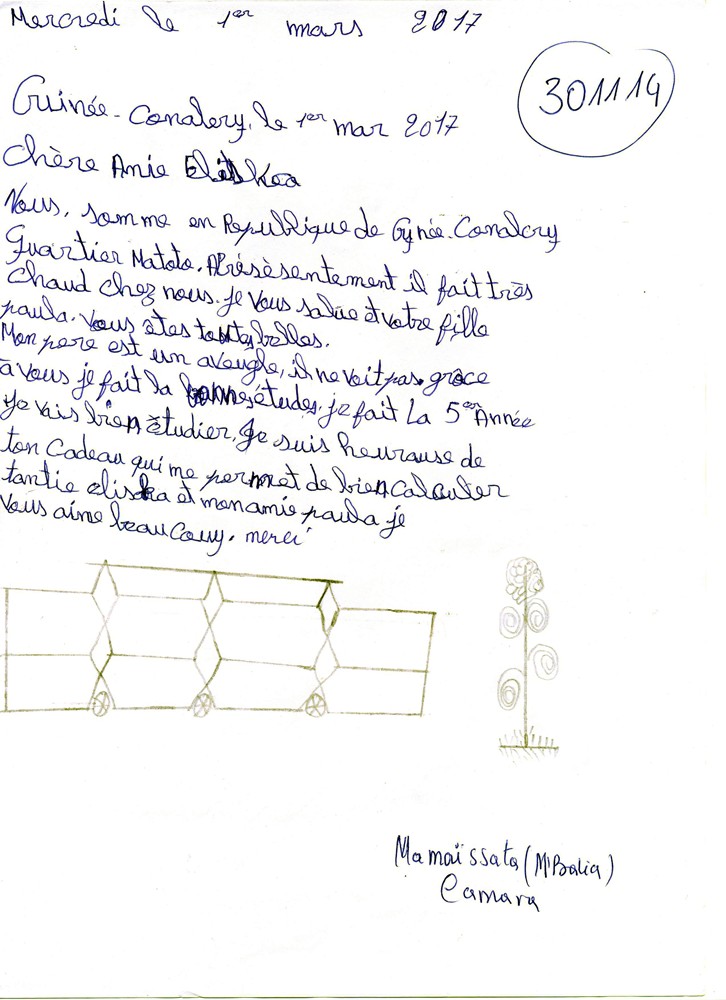 Mercredi le 1er mars 2017
301114
Guinée-Conakry, le 1er mar 2017
Chère Amie
Nous, somme en Republique de Gynée-Conakry
Quartier Matoto. Présèsentement il fait très
chaud chez nous. je vous salue et votre fille
paula. Vous êtes toutes belles.
Mon pere est un aveugle, il ne voit pas grâce
à vous je fait la bonnes études, je fait La 5er Année
Je vais bien étudier, Je suis heurause de
ton Cadeau qui me permet de bien calculer
tantie eliska et mon amie paula je
Vous aime beaucouy. merci
Mamaïssata (M'Balia)
Camara